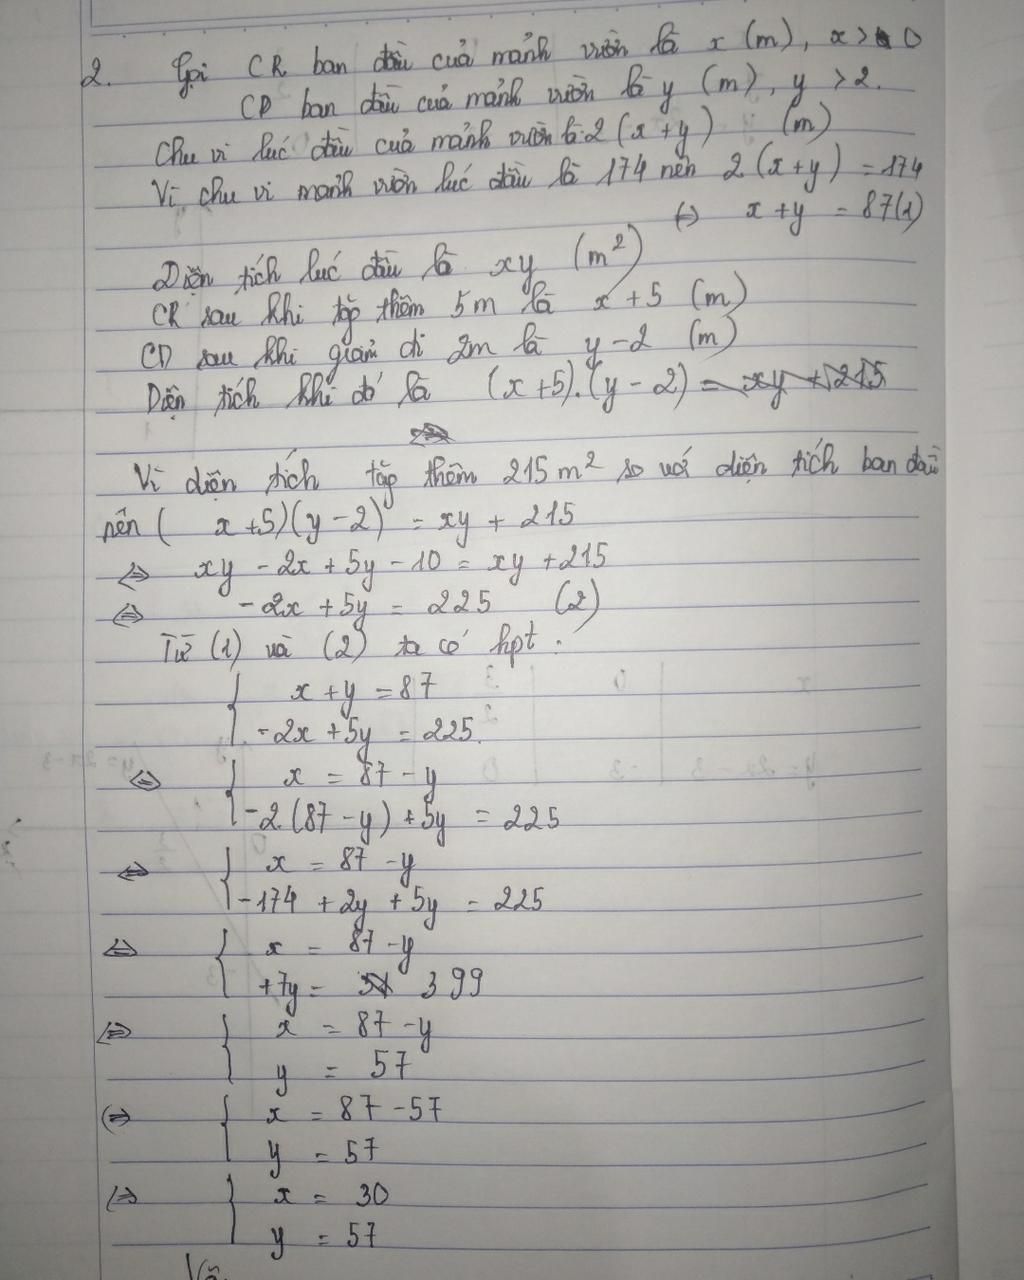 2. Gọi CR ban đầu của mảnh vườn là x (m), x > 0
CD ban đầu của mảnh vườn là y (m), y > 2.
Chu vi lúc đầu của mảnh vườn là: 2(x+y) (m)
Vì chu vi mảnh vườn lúc đầu là 174 nên 2(x+y) = 174
(=) x+y = 87(1)
Diện tích lúc đầu là xy (m²)
CR sau khi tăng thêm 5m là x+5 (m)
CD sau khi giảm đi 2m là y-2 (m)
Diện tích khi đó là (x+5).(y-2) = xy + 215
Vì diện tích tăng thêm 215m² so với diện tích ban đầu
nên (x+5)(y-2) = xy + 215
⇔ xy - 2x + 5y - 10 = xy + 215
⇔ -2x + 5y = 225 (2)
Từ (1) và (2) ta có hpt:
{ x+y = 87
-2x+5y = 225.
⇔ { x = 87-y
-2(87-y)+5y = 225
⇔ { x = 87-y
-174 + 2y + 5y = 225
⇔ { x = 87-y
+7y = 399
⇔ { x = 87-y
y = 57
⇔ { x = 87-57
y = 57
⇔ { x = 30
y = 57